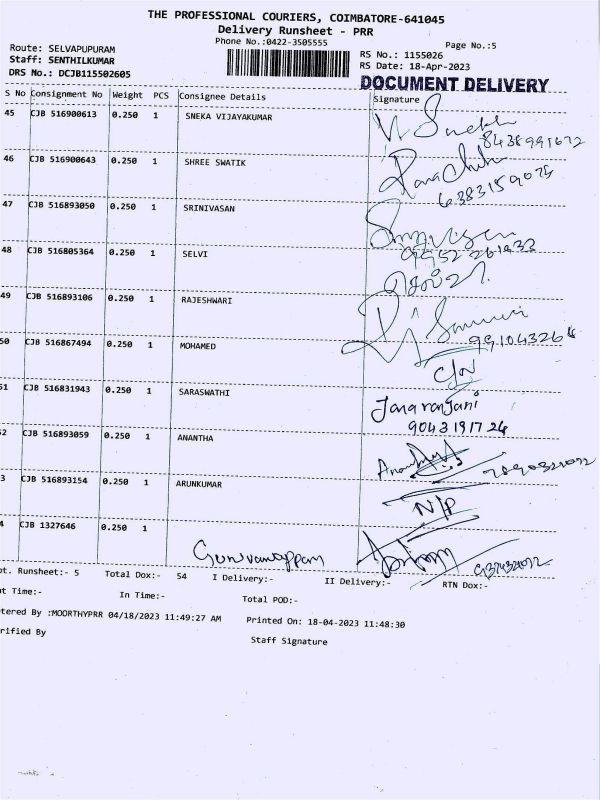 THE PROFESSIONAL COURIERS, COIMBATORE-641045
Delivery Runsheet - PRR
Phone No.:0422-3505555
Page No.:5
Route: SELVAPUPURAM
RS No.: 1155026
Staff: SENTHILKUMAR
RS Date: 18-Apr-2023
DRS No.: DCJB115502605
DOCUMENT DELIVERY
S No Consignment No Weight PCS Consignee Details Signature
45 CJB 516900613 0.250 1 SNEKA VIJAYAKUMAR
8438991672
46 CJB 516900643 0.250 1 SHREE SWATIK
6383159075
47 CJB 516893050 0.250 1 SRINIVASAN
9952 261933
48 CJB 516805364 0.250 1 SELVI
49 CJB 516893106 0.250 1 RAJESHWARI
9910432666
50 CJB 516867494 0.250 1 MOHAMED
51 CJB 516831943 0.250 1 SARASWATHI
Janaranjani
9043191724
52 CJB 516893059 0.250 1 ANANTHA
53 CJB 516893154 0.250 1 ARUNKUMAR
N/P
54 CJB 1327646 0.250 1
pt. Runsheet:- 5 Total Dox:- 54 I Delivery:- II Delivery:- RTN Dox:-
ut Time:- In Time:- Total POD:-
tered By :MOORTHYPRR 04/18/2023 11:49:27 AM Printed On: 18-04-2023 11:48:30
rified By Staff Signature